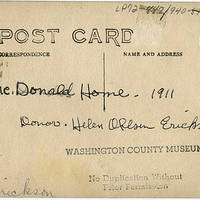 POST CARD
CORRESPONDENCE NAME AND ADDRESS
Mc. Donald Home - 1911
Donor - Helen Olesen Ericks
WASHINGTON COUNTY MUSEUM
No Duplication Without
Prior Permission
Erickson